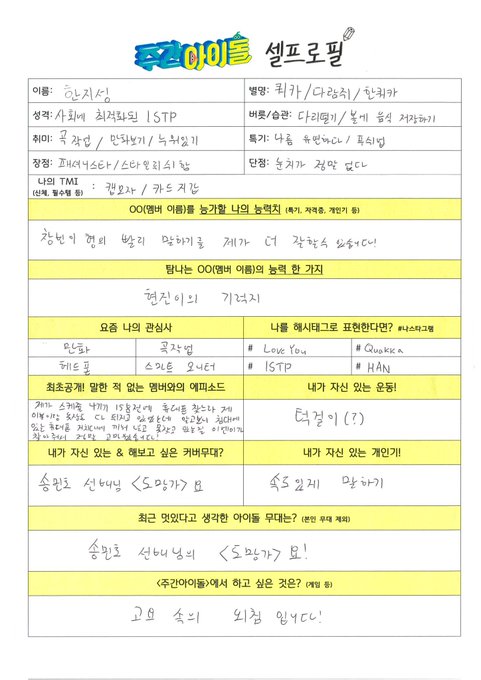 주간아이돌 셀프로필
이름: 한지성
별명: 쿼카/다람쥐/한쿼카
성격: 사회에 최적화된 ISTP
버릇/습관: 다리떨기/볼에 음식 저장하기
취미: 곡작업/만화보기/누워있기
특기: 나름 유연하다/푸쉬업
장점: 패셔니스타/스타일리쉬함
단점: 눈치가 정말 없다
나의 TMI
(신체, 필수템 등) : 캡모자/카드지갑
OO(멤버 이름)를 능가할 나의 능력치 (특기, 자격증, 개인기 등)
창빈이 형의 빨리 말하기를 제가 더 잘할수 있습니다!
탐나는 OO(멤버 이름)의 능력 한 가지
현진이의 기럭지
요즘 나의 관심사
나를 해시태그로 표현한다면? #나스타그램
만화
곡작업
# Love You
# Quokka
헤드폰
스마트 모니터
# ISTP
# HAN
최초공개! 말한 적 없는 멤버와의 에피소드
내가 자신 있는 운동!
제가 스케줄 나가기 15분전에 휴대폰 찾느라 제
찾아줘서 정말 고마웠습니다!
턱걸이(?)
내가 자신 있는 & 해보고 싶은 커버무대?
내가 자신 있는 개인기!
송민호 선배님 <도망가>요
속도있게 말하기
최근 멋있다고 생각한 아이돌 무대는? (본인 무대 제외)
송민호 선배님의 <도망가>요!
<주간아이돌>에서 하고 싶은 것은? (게임 등)
고요 속의 외침 입니다!